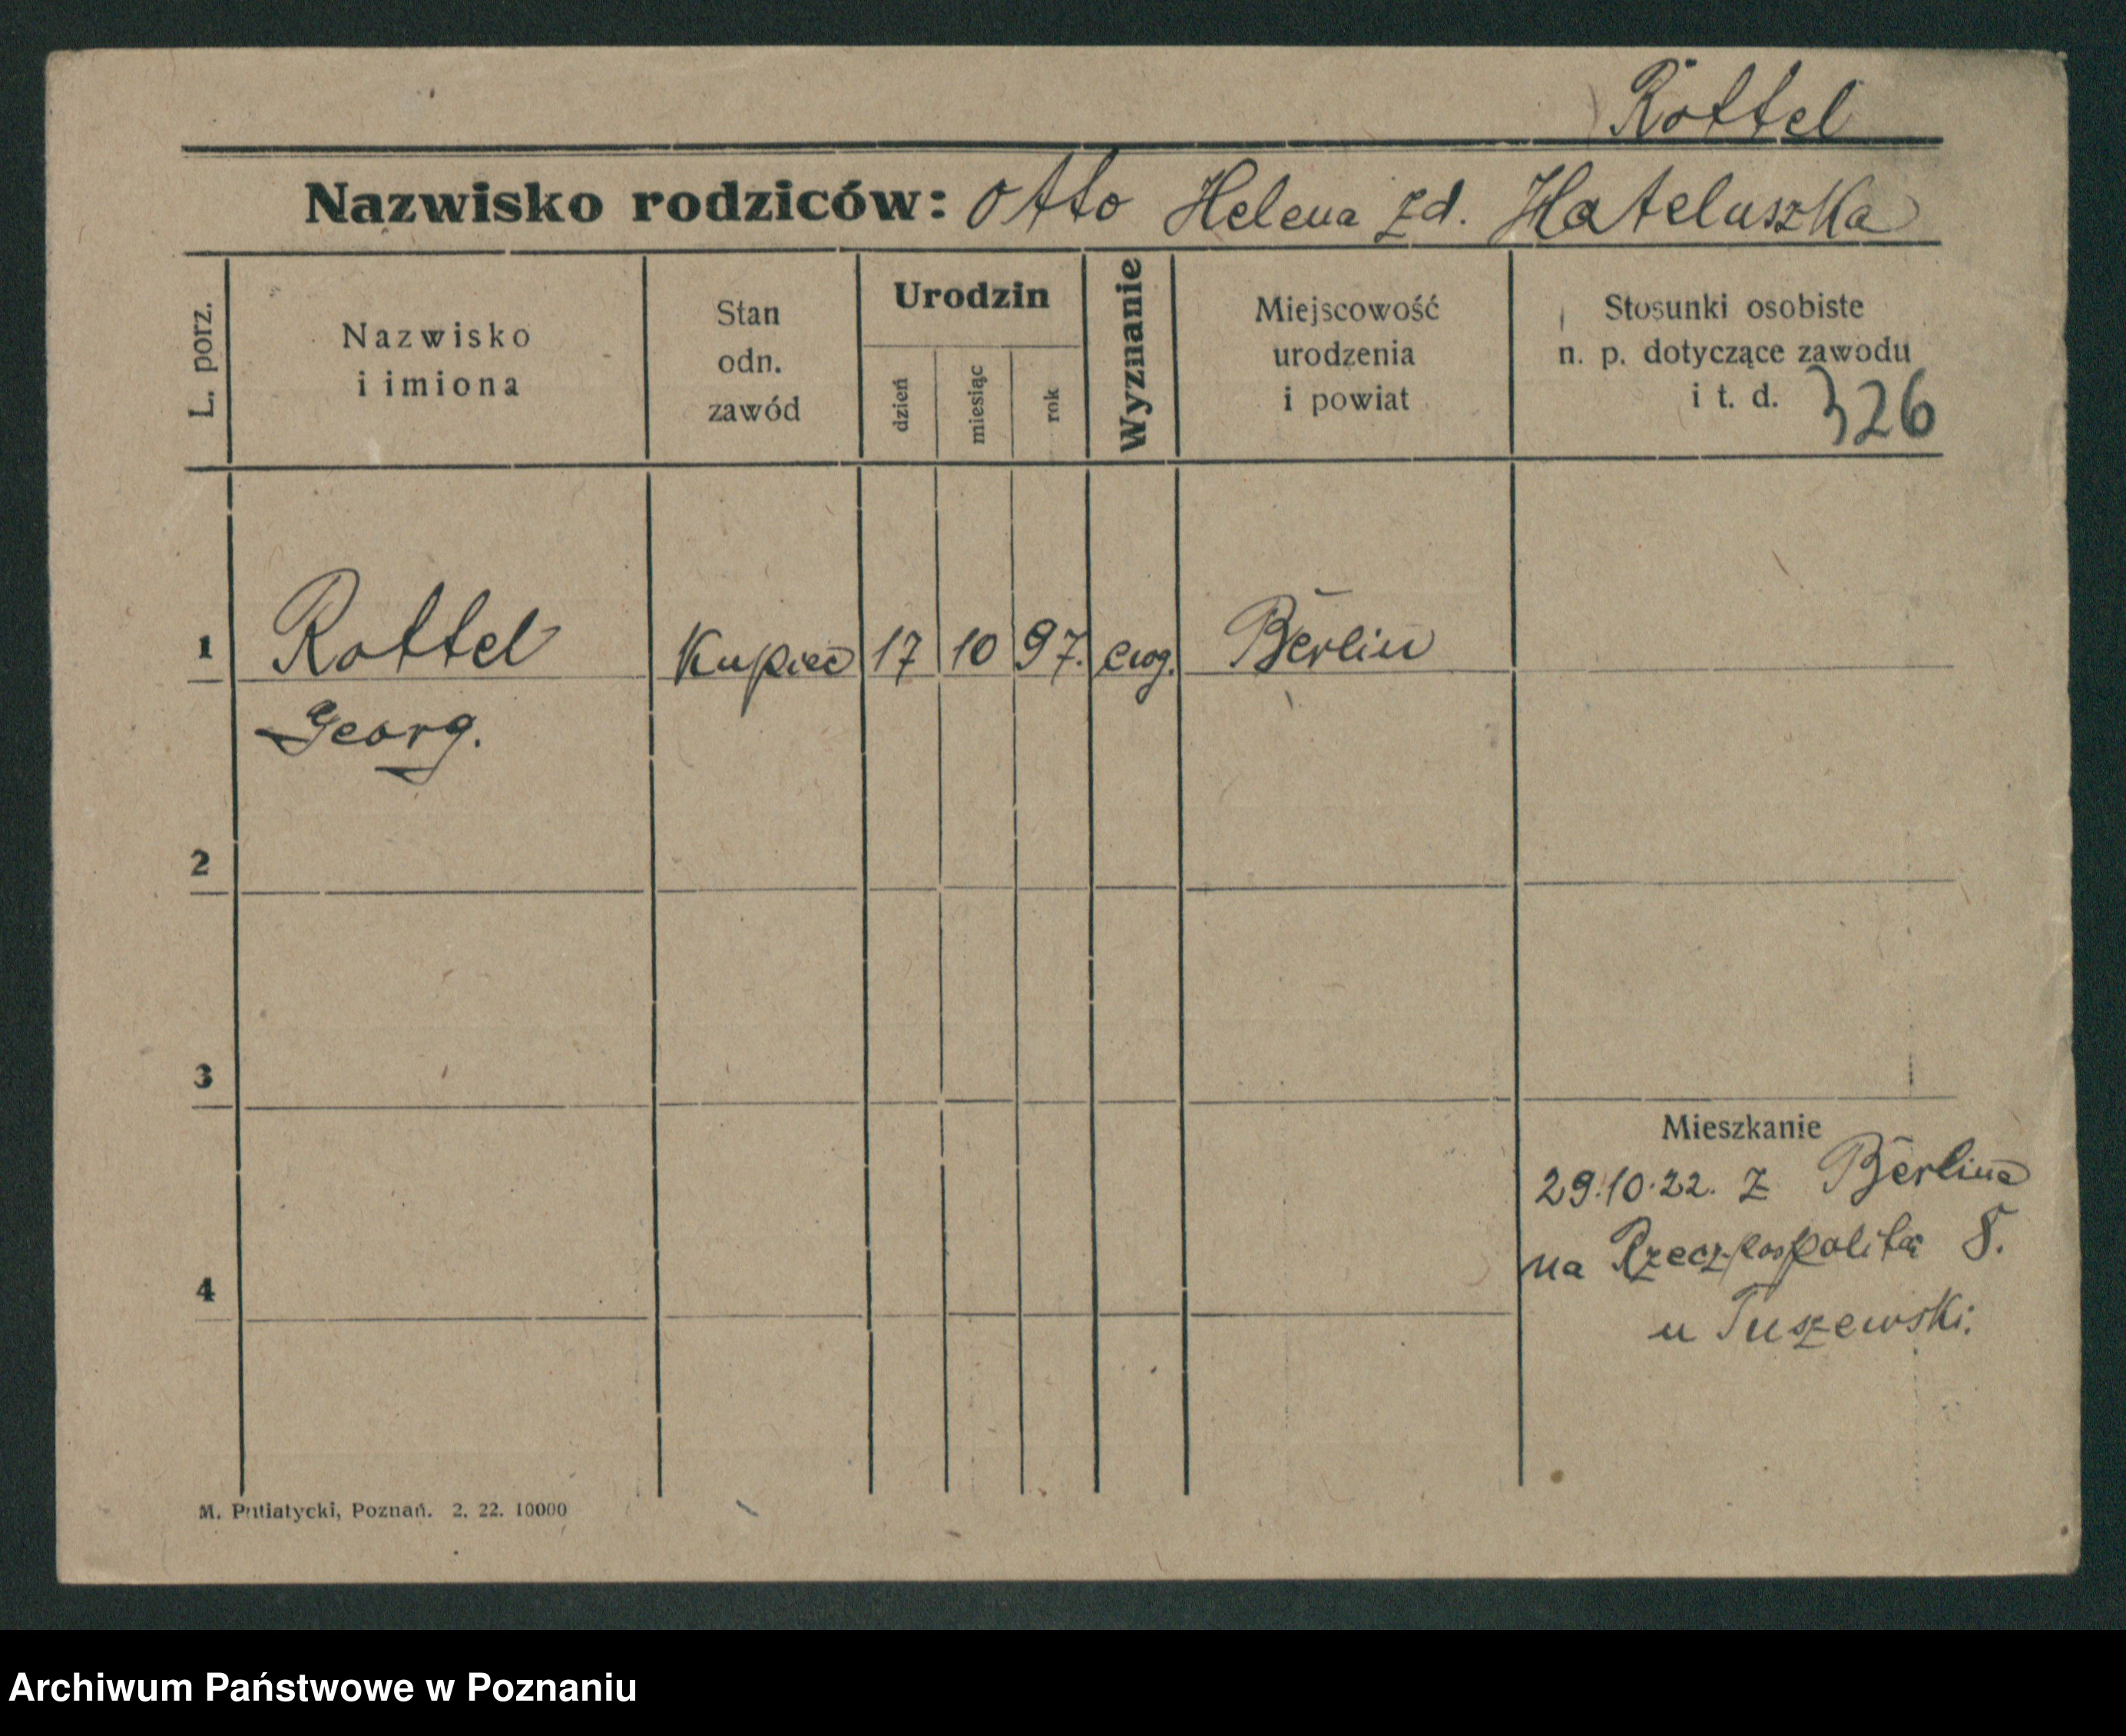 Rottel
Nazwisko rodziców: Otto Helena zd. Hateluszka
L. porz.
Nazwisko i imiona
Stan odn. zawód
Urodzin
dzień
miesiąc
rok
Wyznanie
Miejscowość urodzenia i powiat
Stosunki osobiste n. p. dotyczące zawodu i t. d.
326
1 Rottel Kupiec 17 10 97. ewg. Berlin
Georg.
2
3
4
Mieszkanie
29.10.22. z Berlina
na Rzeczpospolitą 8.
u Tuszewski.
M. Putiatycki, Poznań. 2. 22. 10000
Archiwum Państwowe w Poznaniu